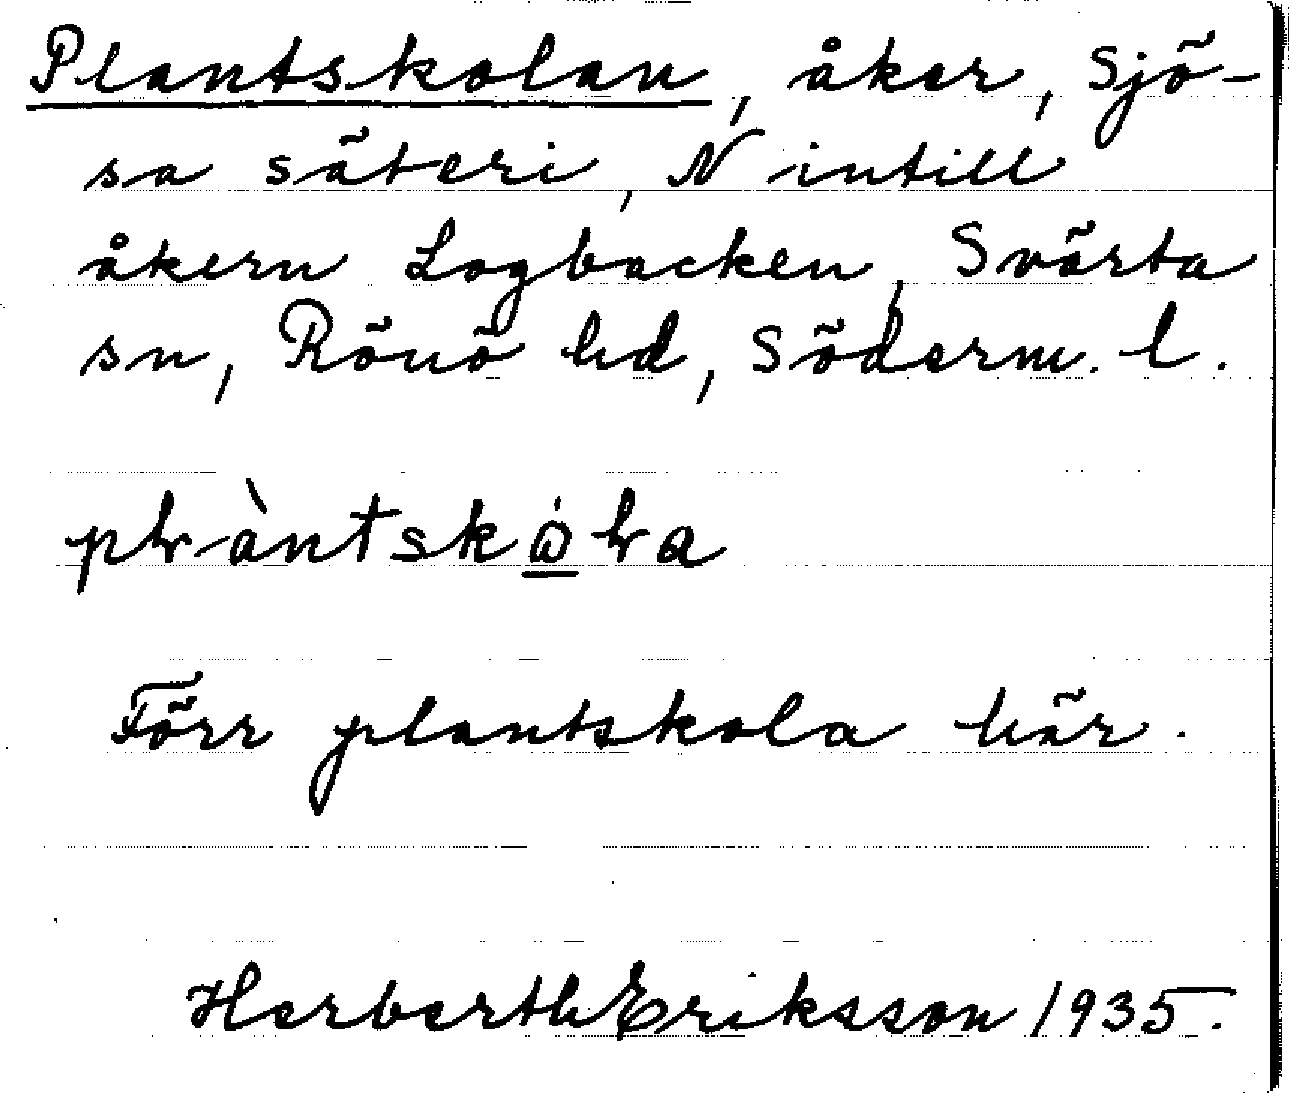 Plantskolan, åker, Sjö-
sa säteri, N intill
åkern Logbacken, Svärta
sn, Rönö hd, Söderm. l.
Förr plantskola här.
Herberth Eriksson 1935.